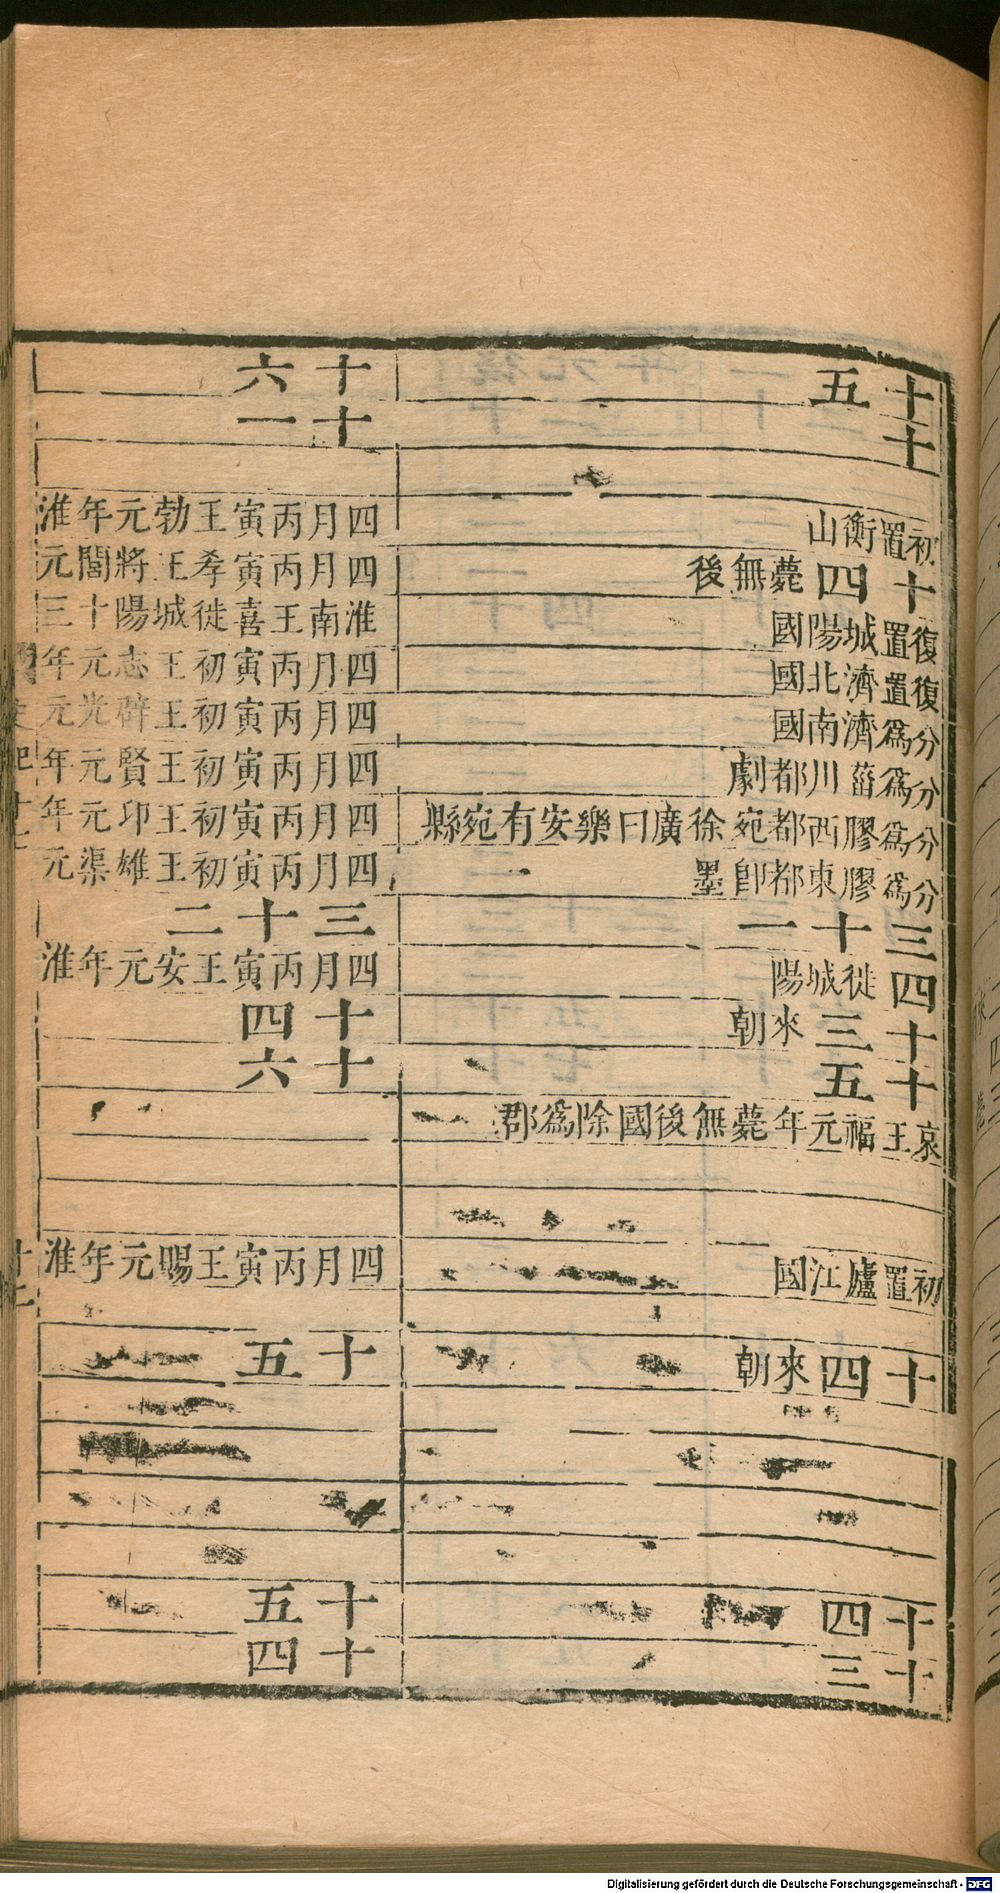 十五
十
初置衡山
十四薨無後
復置城陽國
復置濟北國
分爲濟南國
分爲菑川都劇
分爲膠西都宛徐廣曰樂安有宛縣
分爲膠東都卽墨
三十一
四徙城陽
十三來朝
十五
哀王福元年薨無後國除爲郡
初置廬江國
十四來朝
十四
十三
十六
十一
四月丙寅王勃元年淮
四月丙寅孝王將閭元
淮南王喜徙城陽十三
四月丙寅初王志元年
四月丙寅初王辟光元
四月丙寅初王賢元年
四月丙寅初王印元年
四月丙寅初王雄渠元
三十二
四月丙寅王安元年淮
十四
十六
四月丙寅王賜元年淮
十五
十五
十四
Digitalisierung gefördert durch die Deutsche Forschungsgemeinschaft - DFG